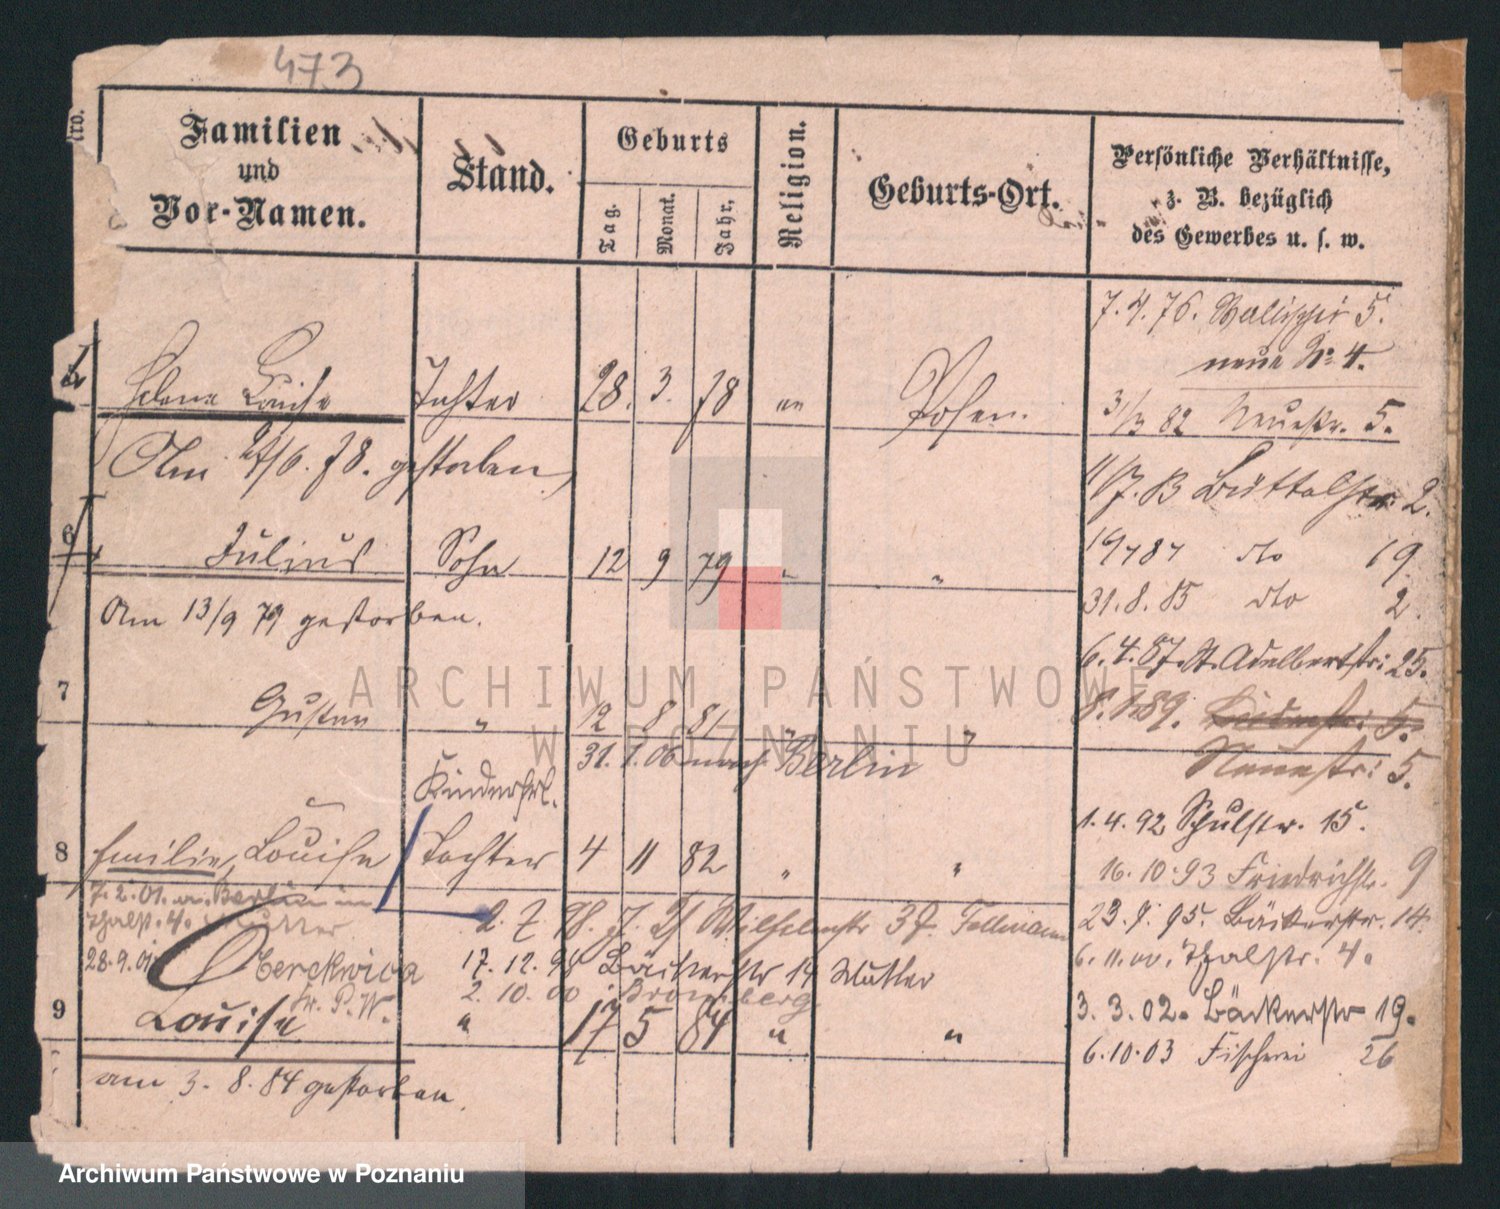 473
Nro.
Familien
und
Vor-Namen.
Stand.
Geburts
Tag.
Monat.
Jahr.
Religion.
Geburts-Ort.
Persönliche Verhältnisse,
z. B. bezüglich
des Gewerbes u. s. w.
7. 4. 76. Wallischei 5.
neue No 4.
Helene Louise Tochter 28. 3. 78 Posen.
31/3 82 Neuestr. 5.
Am 24/6. 78. gestorben,
11/7. 83 Büttelstr. 2.
6 Julius Sohn 12 9 79 " "
dto 19
31. 8. 85 dto 2.
Am 13/9 79 gestorben.
6. 4. 87. St. Adelbertstr: 25.
7 Gustav " 12 8 81 " "
89. 5.
31. 1. 06 nach Berlin
Neuestr: 5.
Kinderfrl.
1. 4. 92 Schulstr. 15.
8 Emilie, Louise Tochter 4 11 82 " "
16. 10. 93 Friedrichstr. 9
7. 2. 01. Berlin
Thalst. 4. Mutter
2. 7 98. Wilhelmstr Tellmann
23. 9. 95. Bäckerstr. 14.
28. 9. 01 Oberckwica 17. 12. 98 Bäckerstr 14 Mutter
6. 11. 00. Thalstr. 4.
Fr. P. W. 2. 10. 00 Bromberg
9 Louise " 17 5 84 " "
3. 3. 02. Bäckerstr 19.
6. 10. 03 Fischerei 26
am 3. 8. 84 gestorben.
ARCHIWUM PAŃSTWOWE
W POZNANIU
Archiwum Państwowe w Poznaniu